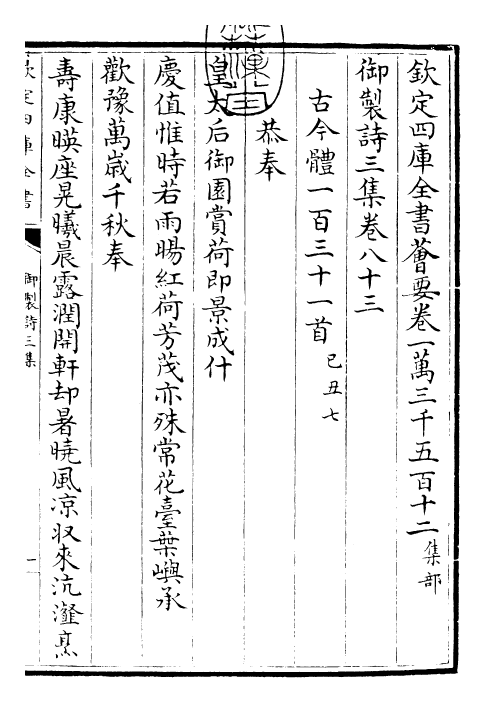 欽定四庫全書薈要卷一萬三千五百十二集部
御製詩三集卷八十三
古今體一百三十一首己丑七
恭奉
皇太后御園賞荷即景成什
慶值惟時若雨暘紅荷芳茂亦殊常花臺葉嶼承
歡豫萬歲千秋奉
壽康暎座晃曦晨露潤開軒却暑曉風凉収來沆瀣烹
欽定四庫全書
御製詩三集
一